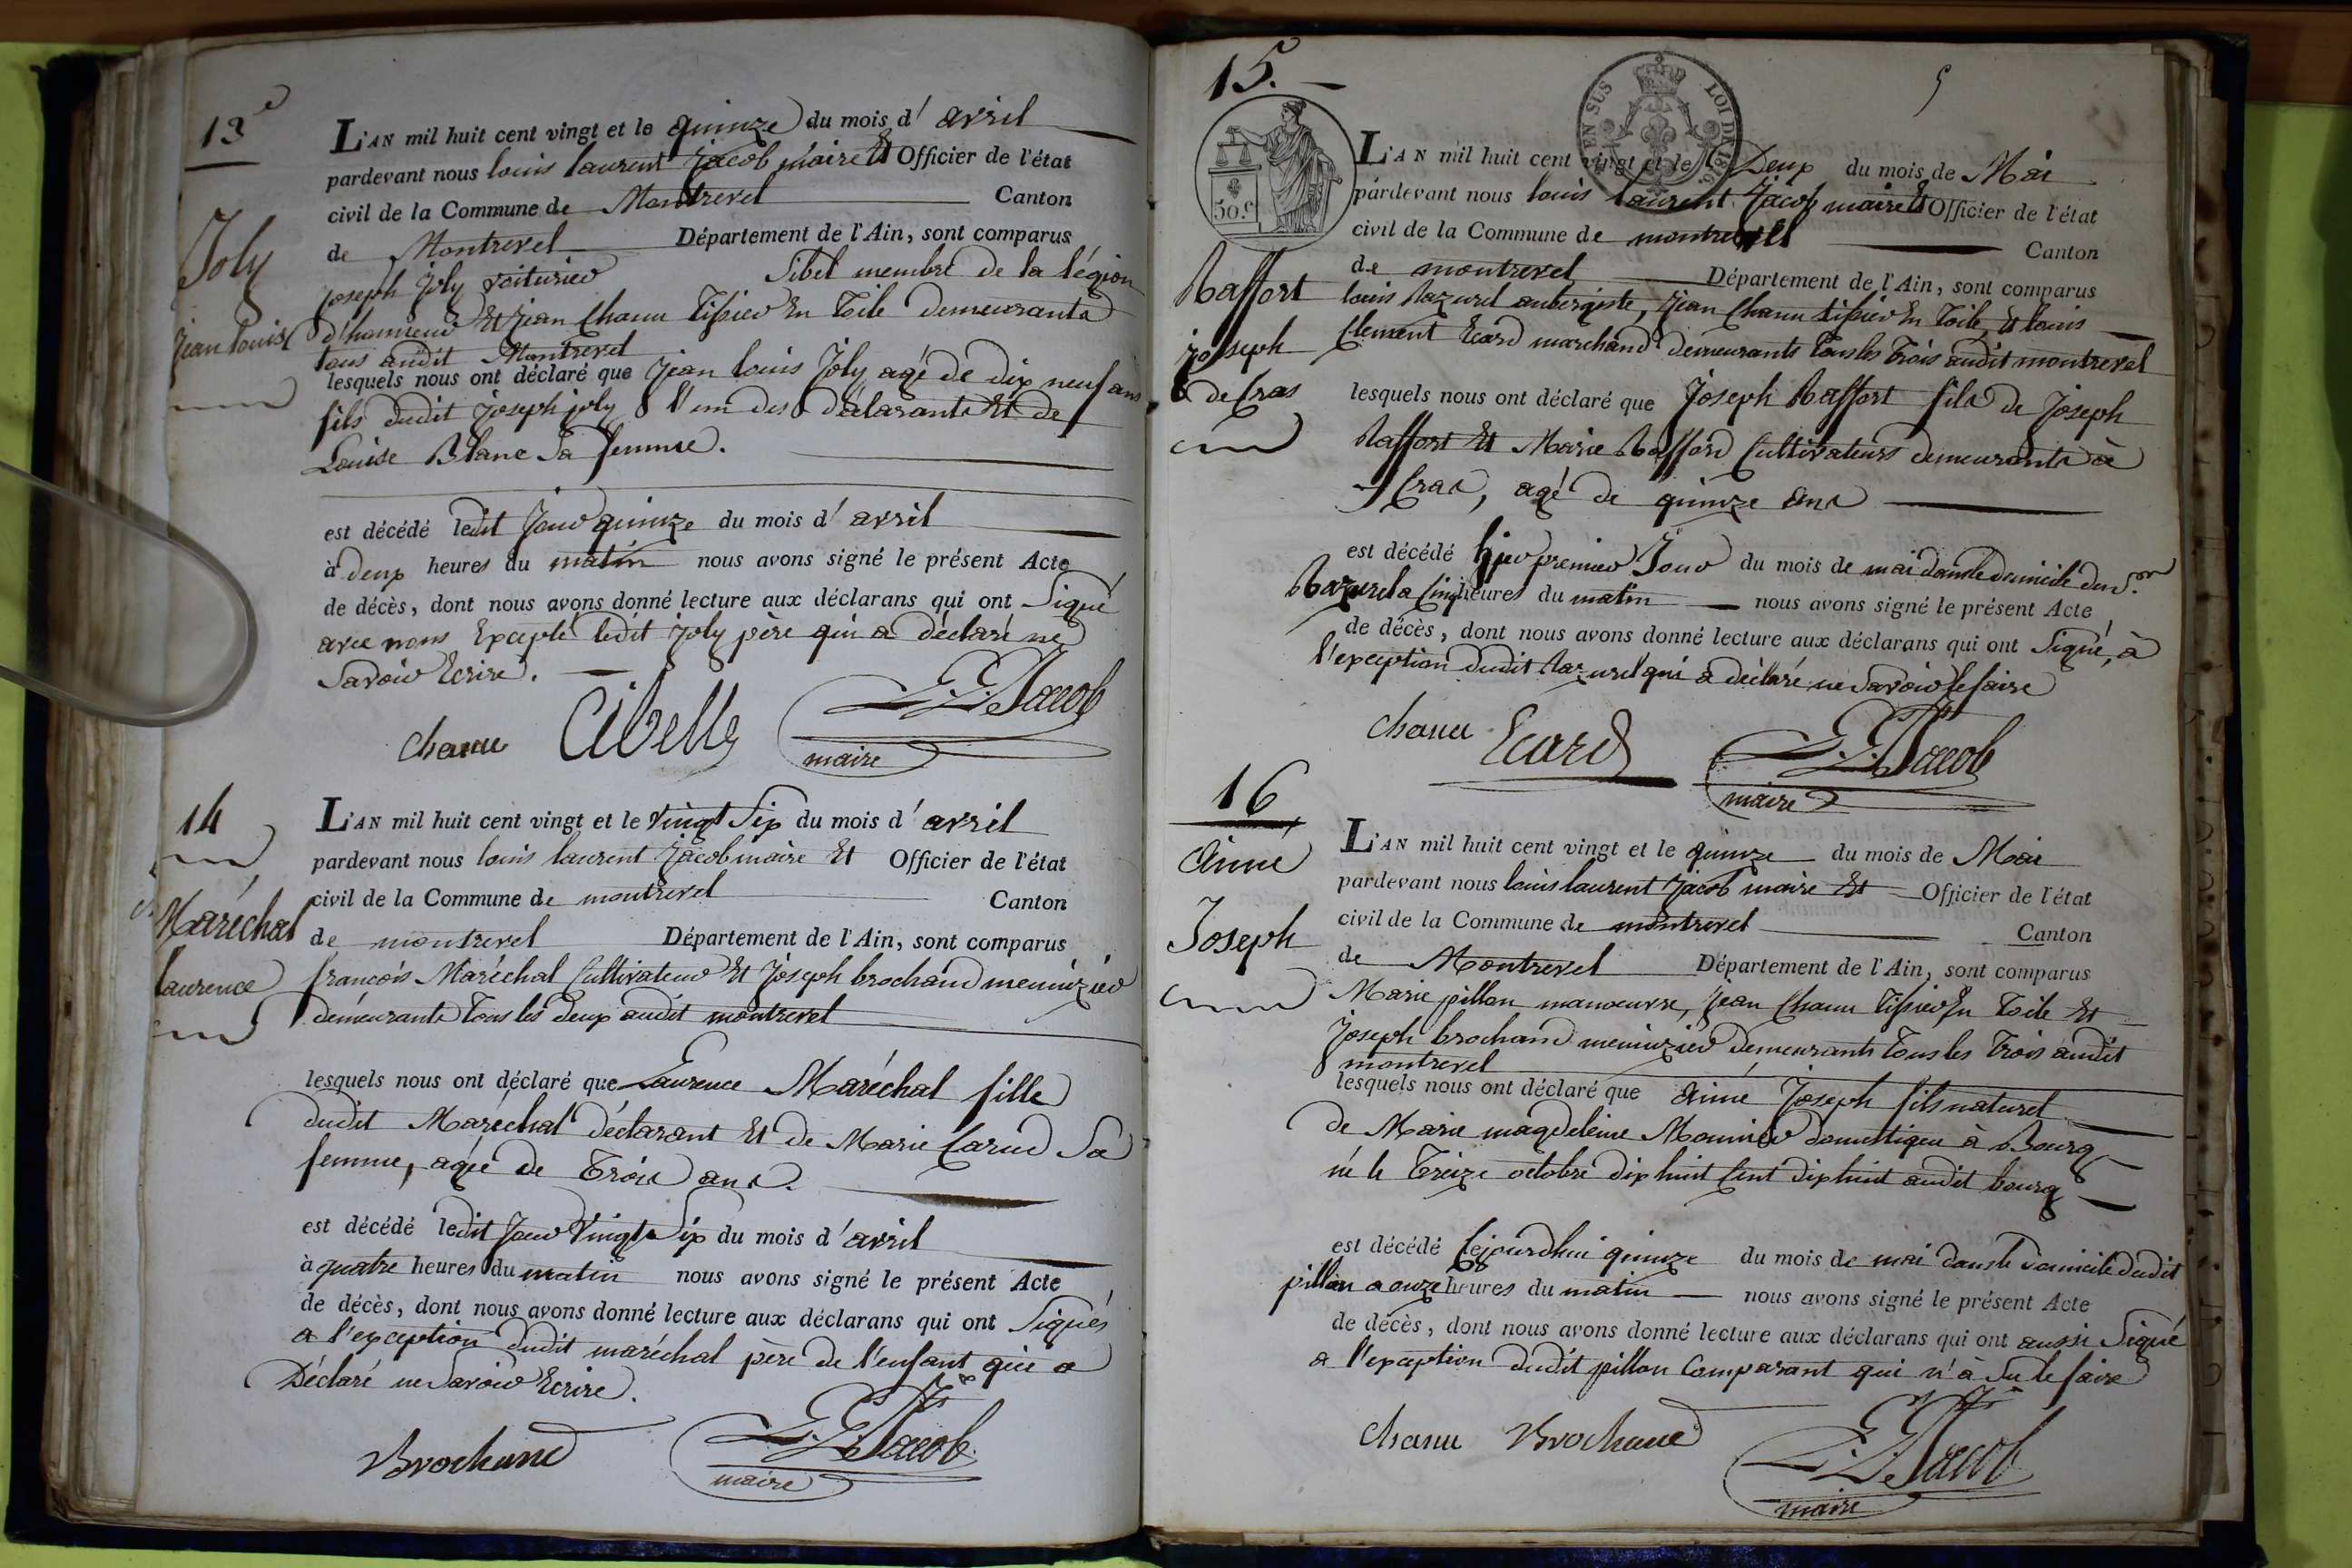 13e
Joly
jean louis
L'AN mil huit cent vingt et le quinze du mois d'avril
pardevant nous louis laurent jacob maire Et Officier de l'état
civil de la Commune de Montrevel Canton
de Montrevel Département de l'Ain, sont comparus
joseph joly voiturier Sibel membre de la légion
d'honneur Et jean Chanu Tissier En Toile demeurants
tous audit Montrevel
lesquels nous ont déclaré que jean louis joly agé de dix neuf ans
fils dudit joseph joly l'un des déclarants Et de
Louise Blanc Sa femme.
est décédé ledit jour quinze du mois d'avril
à deux heures du matin nous avons signé le présent Acte
de décès, dont nous avons donné lecture aux déclarans qui ont Signé
avec nous Excepté ledit joly père qui a déclaré ne
Savoir Ecrire.
chanu Cibelle L.L. Jacob
maire
14
Maréchal
laurence
L'AN mil huit cent vingt et le vingt Six du mois d'avril
pardevant nous louis laurent jacob maire Et Officier de l'état
civil de la Commune de montrevel Canton
de montrevel Département de l'Ain, sont comparus
françois Maréchal Cultivateur Et joseph brochand menuizier
demeurants Tous les deux audit montrevel
lesquels nous ont déclaré que Laurence Maréchal fille
dudit Maréchal déclarant Et de Marie Sa
femme, agée de Trois ans.
est décédé ledit jour Vingt Six du mois d'avril
à quatre heures du matin nous avons signé le présent Acte
de décès, dont nous avons donné lecture aux déclarans qui ont Signés
a l'exception dudit maréchal père de l'enfant qui a
Déclaré ne Savoir Ecrire.
Brochand L.L. Jacob
maire
15.
5
EN SUS LOI DE 1816
50.c
Raffort
joseph
de Cras
L'AN mil huit cent vingt et le Deux du mois de Mai
pardevant nous louis laurent jacob maire Et Officier de l'état
civil de la Commune de montrevel Canton
de montrevel Département de l'Ain, sont comparus
louis Razurel aubergiste, jean Chanu tissier En Toile, Et louis
Clement Ecard marchand demeurants Tous les Trois audit montrevel
lesquels nous ont déclaré que Joseph Raffort fils de Joseph
Raffort Et Marie Rafford Cultivateurs demeurants à
Cras, agé de quinze ans
est décédé hier premier Jour du mois de mai dans le domicile du Sr
Razurel a Cinq heures du matin nous avons signé le présent Acte
de décès, dont nous avons donné lecture aux déclarans qui ont Signé, à
l'exception dudit Razurel qui a déclaré ne Savoir le faire
chanu Ecard L.L. Jacob
maire
16
Aimé
Joseph
L'AN mil huit cent vingt et le quinze du mois de Mai
pardevant nous louis laurent jacob maire Et Officier de l'état
civil de la Commune de montrevel Canton
de Montrevel Département de l'Ain, sont comparus
Marie pillon manoeuvre, jean Chanu Tissier En Toile Et
Joseph brochand menuizier demeurants Tous les Trois audit
montrevel
lesquels nous ont déclaré que aimé Joseph fils naturel
de Marie magdeleine Monnier domestique à Bourg
né le Treize octobre dix huit Cent dix huit audit bourg
est décédé Cejourdhui quinze du mois de mai dans le domicile dudit
pillon a onze heures du matin nous avons signé le présent Acte
de décès, dont nous avons donné lecture aux déclarans qui ont aussi Signé
a l'exception dudit pillon Comparant qui n'a Su le faire
chanu Brochand L.L. Jacob
maire